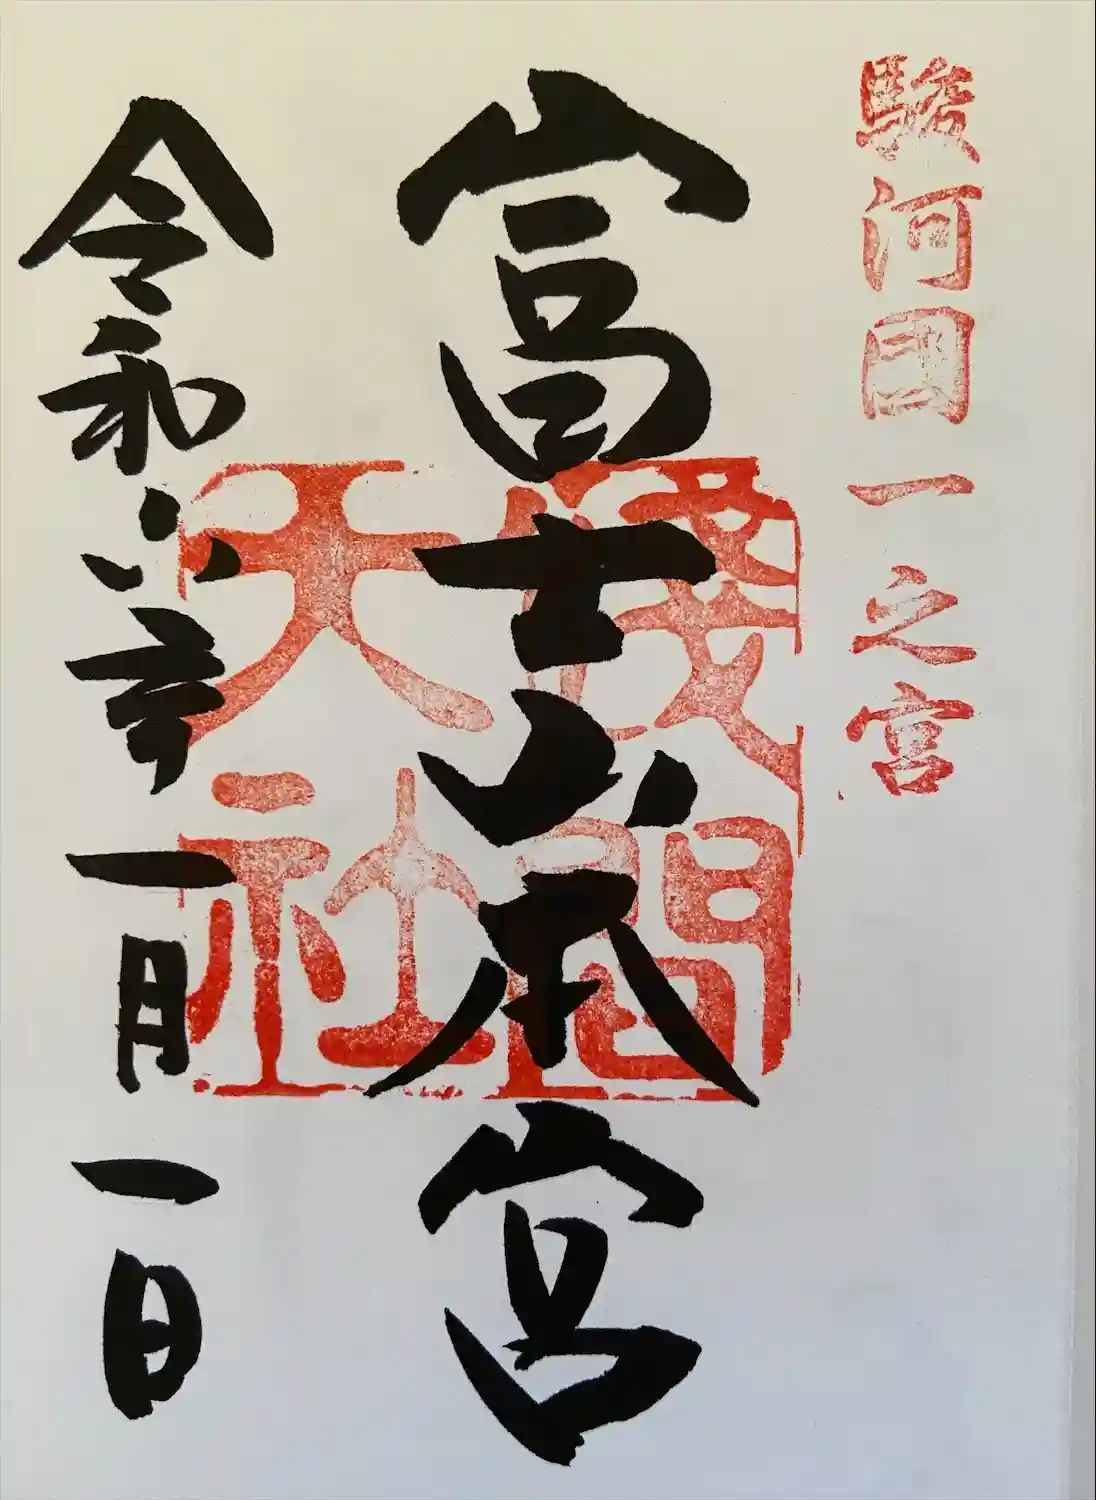 駿河國一之宮
富士山本宮
淺間
大社
令和六年一月一日